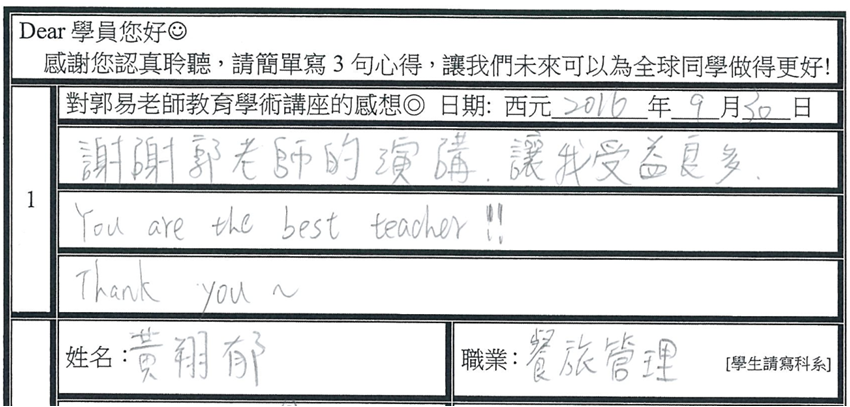 Dear 學員您好☺
感謝您認真聆聽，請簡單寫 3 句心得，讓我們未來可以為全球同學做得更好!
1
對郭易老師教育學術講座的感想◎ 日期: 西元 2016 年 9 月 30 日
謝謝郭老師的演講. 讓我受益良多.
You are the best teacher!!
Thank you ~
姓名：黃翔郁 職業：餐旅管理 [學生請寫科系]